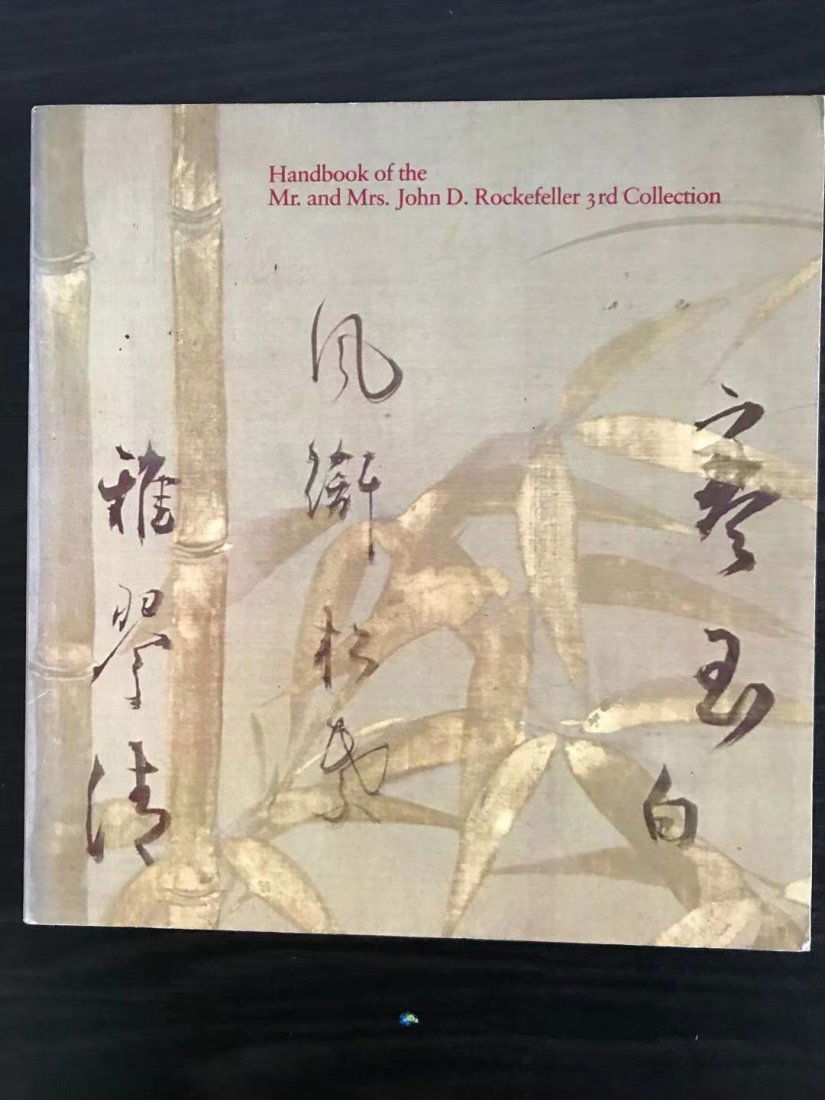 Handbook of the
Mr. and Mrs. John D. Rockefeller 3rd Collection
玉白
風松
雅清